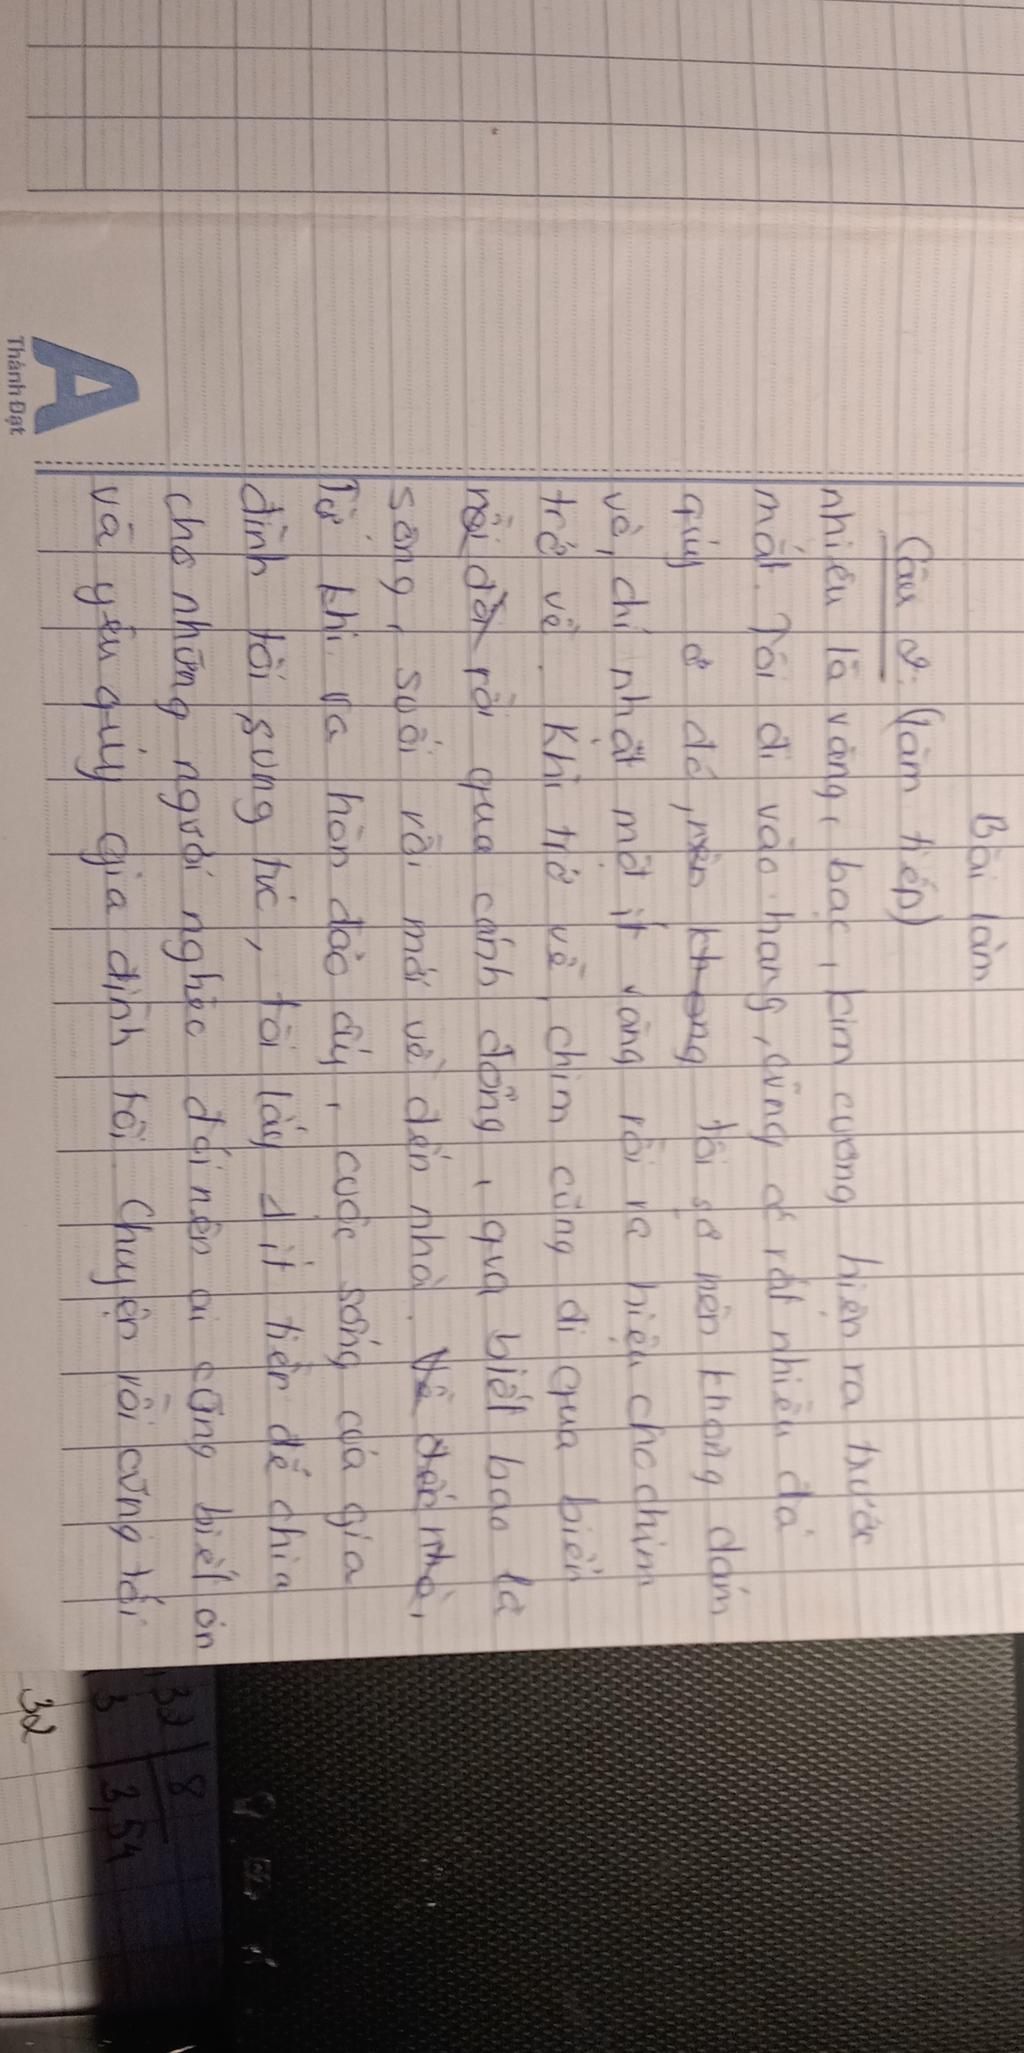 Bài làm
Câu 2: (làm tiếp)
nhiêu là vàng, bạc, kim cương hiện ra trước
mắt. Tôi đi vào hang, cũng có rất nhiều đá
qúy ở đó, tôi sợ nên không dám
về, chỉ nhặt một ít vàng rồi ra hiệu cho chim
trở về. Khi trở về, chim cũng đi qua biển
rồi qua cánh đồng, qua biết bao là
sông, suối rồi mới về đến nhà.
Từ khi ra hòn đảo ấy, cuộc sống của gia
đình tôi sung túc, tôi lấy 1 ít tiền để chia
cho những người nghèo đói nên ai cũng biết ơn
và yêu qúy gia đình tôi. Chuyện rồi cũng tới
A
Thành Đạt
8
3,54
32